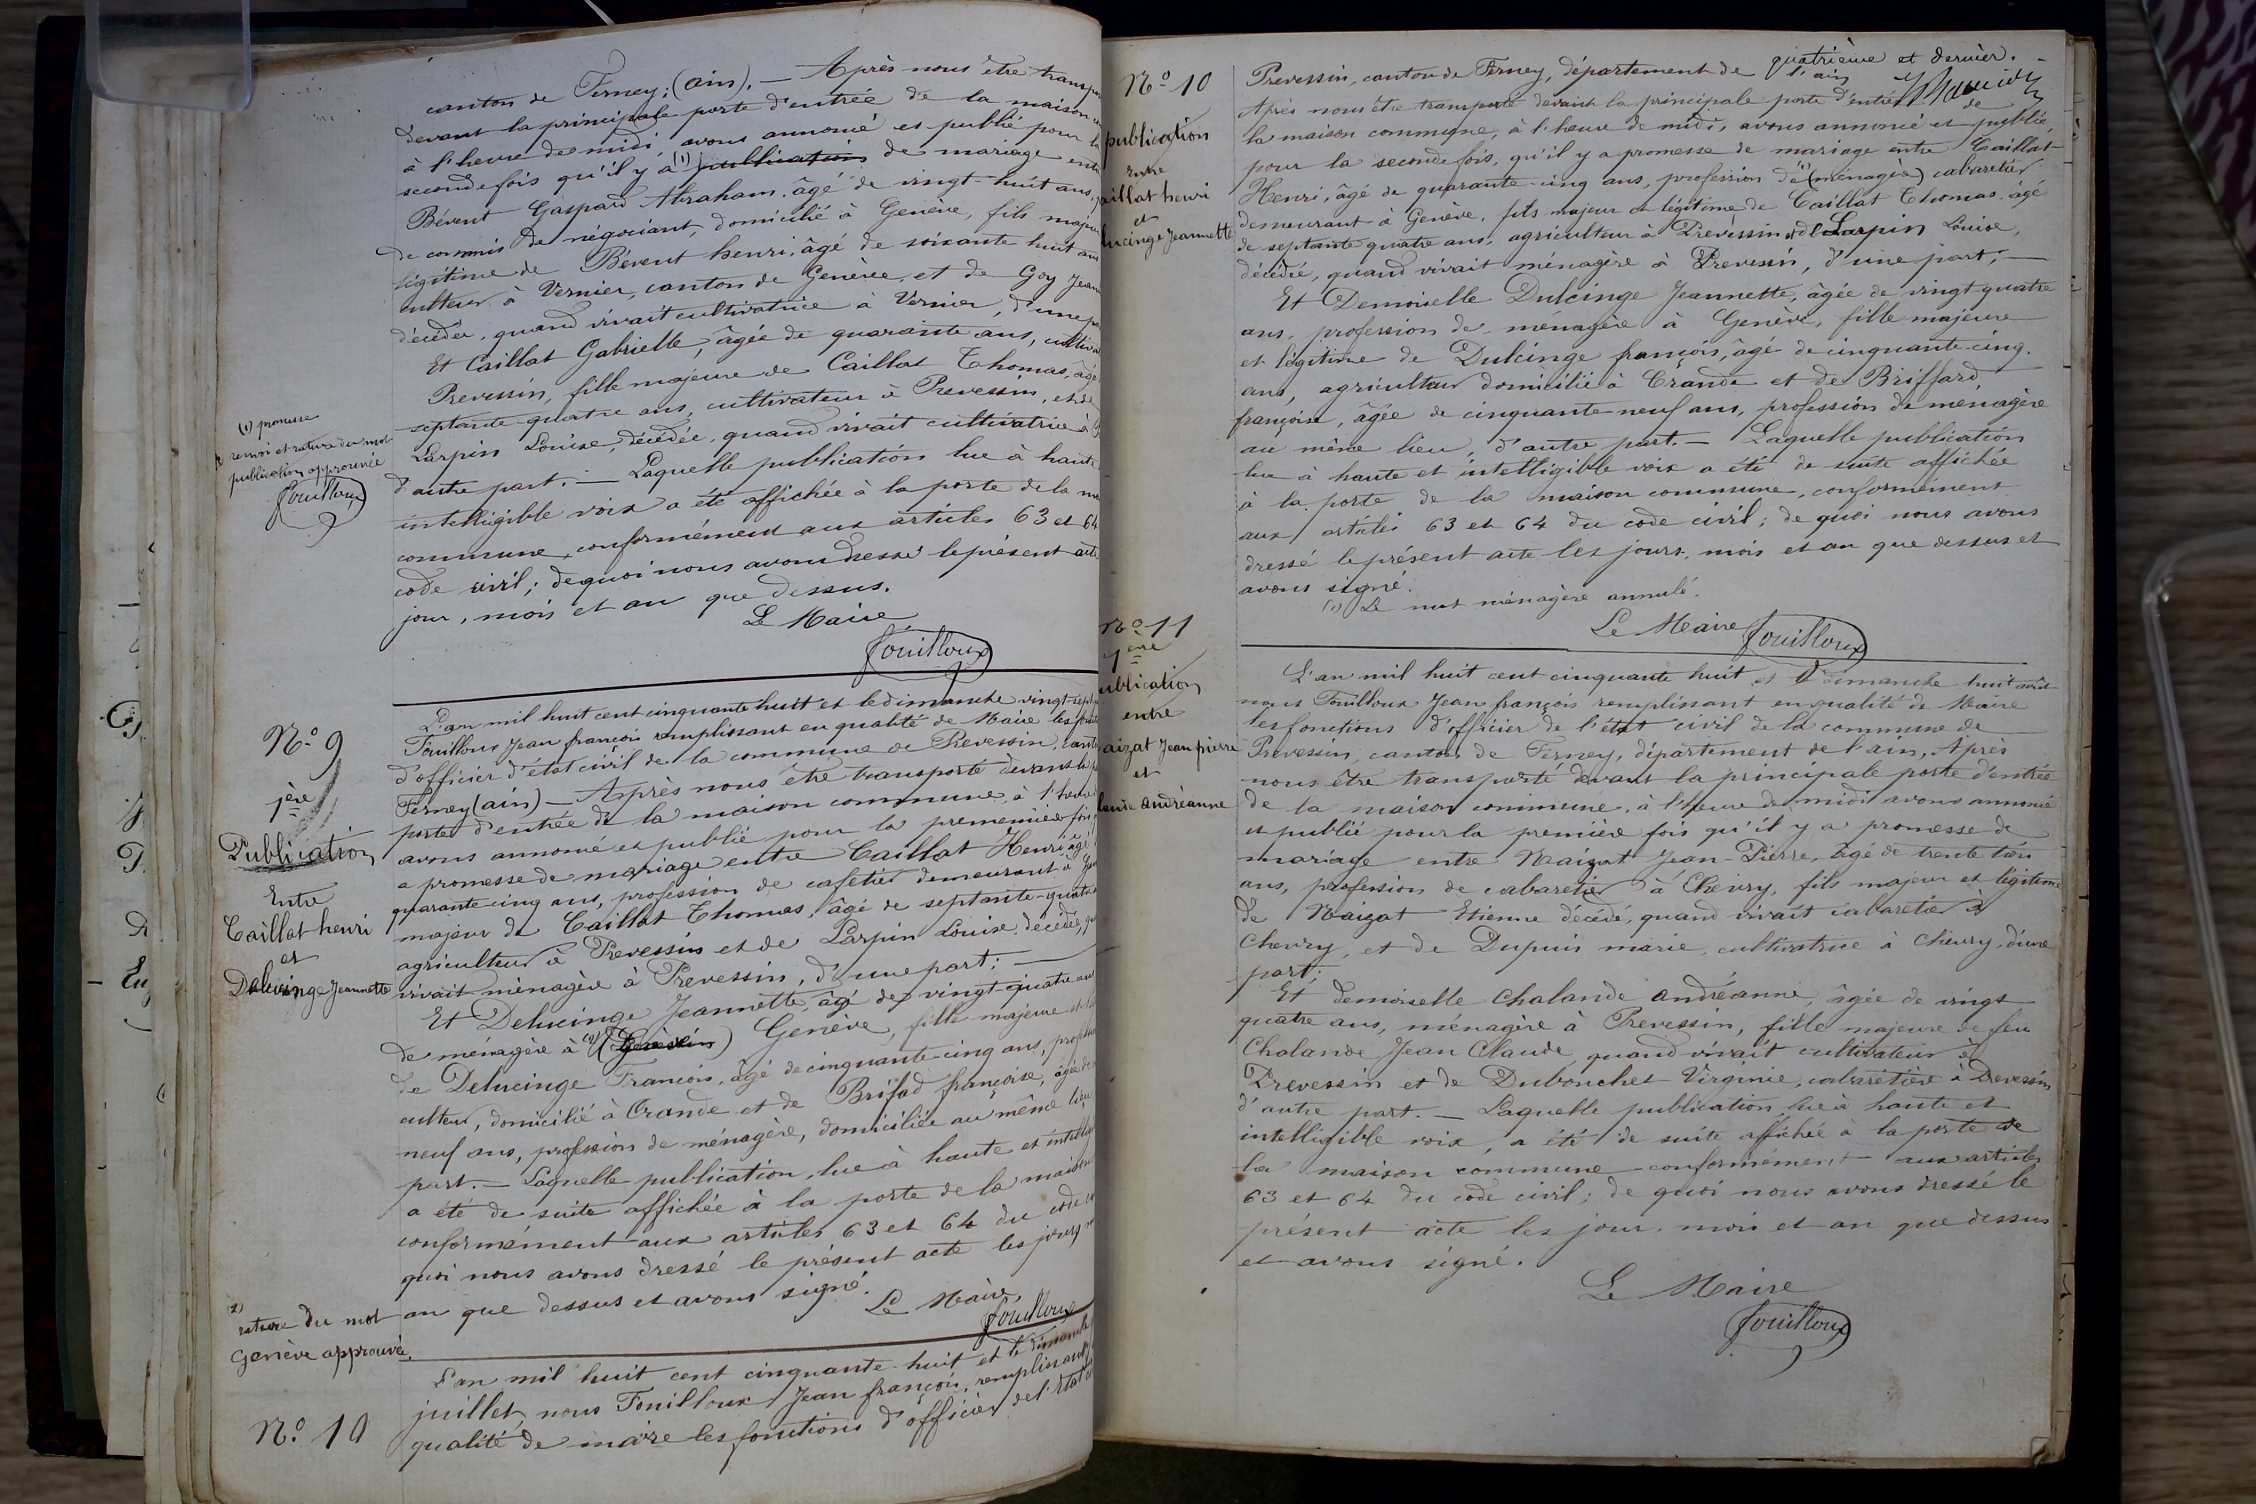 canton de Ferney; (ain). — Après nous être
devant la principale porte d'entrée de la maison
à l'heure de midi, avons annoncé et publié pour
seconde fois qu'il y a (1) publication de mariage
Bévent Gaspard Abraham, âgé de vingt-huit ans,
de commis de négociant, domicilié à Genève, fils
légitime de Bévent henri, âgé de soixante huit ans
à Vernier, canton de Genève, et de Goy
décédée, quand vivait cultivatrice à Vernier,
Et Caillat Gabrielle, âgée de quarante ans,
Prevessin, fille majeure de Caillat Thomas,
septante quatre ans, cultivateur à Prevessin,
Larpin Louise, décédée, quand vivait cultivatrice à
d'autre part. — Laquelle publication lue à haute
intelligible voix a été affichée à la porte de la
commune, conformément aux articles 63 et 64
code civil; de quoi nous avons dressé le présent acte
jour, mois et an que dessus.
Le Maire
Fouilloux
(1) promesse
renvoi et rature du mot
publication approuvée
Fouilloux
No. 9
1ère
Publication
Entre
Caillat henri
et
Delucinge Jeannette
L'an mil huit cent cinquante huit et le dimanche
Fouilloux Jean françois remplissant en qualité de Maire les
d'officier d'état civil de la commune de Prevessin,
Ferney (ain) — Après nous être transporté devant
porte d'entrée de la maison commune, à l'heure
avons annoncé et publié pour la premenière fois
a promesse de mariage entre Caillat Henri âgé
quarante cinq ans, profession de cafetier demeurant à
majeur de Caillat Thomas, âgé de septante-quatre
agriculteur à Prevessin et de Larpin Louise décédée,
vivait ménagère à Prevessin, d'une part; —
Et Delucinge Jeannette, âgé de vingt-quatre
de ménagère à Genève, fille majeure
de Delucinge François, âgé de cinquante-cinq ans,
culteur, domicilié à Crande et de Brifad françoise,
neuf ans, profession de ménagère, domiciliée au même lieu
part. — Laquelle publication, lue à haute et
a été de suite affichée à la porte de la maison
conformément aux articles 63 et 64 du code
quoi nous avons dressé le présent acte les jours
an que dessus et avons signé.
Le Maire,
Fouilloux
rature du mot
Genève approuvée.
No. 10
L'an mil huit cent cinquante-huit et le dimanche
juillet, nous Fouilloux Jean françois, remplissant
qualité de maire les fonctions d'officier de l'état
quatrième et dernier.
No. 10
publication
entre
aillat henri
et
lucinge Jeannette
Prevessin, canton de Ferney, département de l'ain
Après nous être transporté devant la principale porte d'entrée de
la maison commune, à l'heure de midi, avons annoncé et publié,
pour la seconde fois, qu'il y a promesse de mariage entre Caillat
Henri, âgé de quarante-cinq ans, profession de (1) (ménagère) cabaretier
demeurant à Genève, fils majeur et légitime de Caillat Thomas, âgé
de septante quatre ans, agriculteur à Prevessin et de Larpin Louise,
décédée, quand vivait ménagère à Prevessin, d'une part, —
Et Demoiselle Dulcinge Jeannette, âgée de vingt-quatre
ans, profession de ménagère à Genève, fille majeure
et légitime de Dulcinge françois, âgé de cinquante-cinq
ans, agriculteur domicilié à Crande et de Briffard
françoise, âgée de cinquante-neuf ans, profession de ménagère
au même lieu, d'autre part. — Laquelle publication
lue à haute et intelligible voix a été de suite affichée
à la porte de la maison commune, conformément
aux articles 63 et 64 du code civil; de quoi nous avons
dressé le présent acte les jours, mois et an que dessus et
avons signé.
(1) Le mot ménagère annulé.
Le Maire
Fouilloux
No 11
1ère
ublication
entre
aizat Jean pierre
et
lande andréanne
L'an mil huit cent cinquante huit et le dimanche huit août
nous Fouilloux Jean françois remplissant en qualité de Maire
les fonctions d'officier de l'état civil de la commune de
Prevessin, canton de Ferney, département de l'ain, Après
nous être transporté devant la principale porte d'entrée
de la maison commune, à l'heure de midi avons annoncé
et publié pour la première fois qu'il y a promesse de
mariage entre Maizat Jean-Pierre, âgé de trente trois
ans, profession de cabaretier à Chevry, fils majeur et légitime
de Maizat Etienne décédé, quand vivait cabaretier à
Chevry, et de Dupuis marie, cultivatrice à Chevry, d'une
part;
Et demoiselle Chalande andréanne, âgée de vingt
quatre ans, ménagère à Prevessin, fille majeure de feu
Chalande Jean Claude quand vivait cultivateur à
Prevessin et de Dubouchet Virginie, cabaretière à Prevessin
d'autre part. — Laquelle publication lue à haute et
intelligible voix, a été de suite affichée à la porte de
la maison commune conformément aux articles
63 et 64 du code civil; de quoi nous avons dressé le
présent acte les jour, mois et an que dessus
et avons signé.
Le Maire
Fouilloux